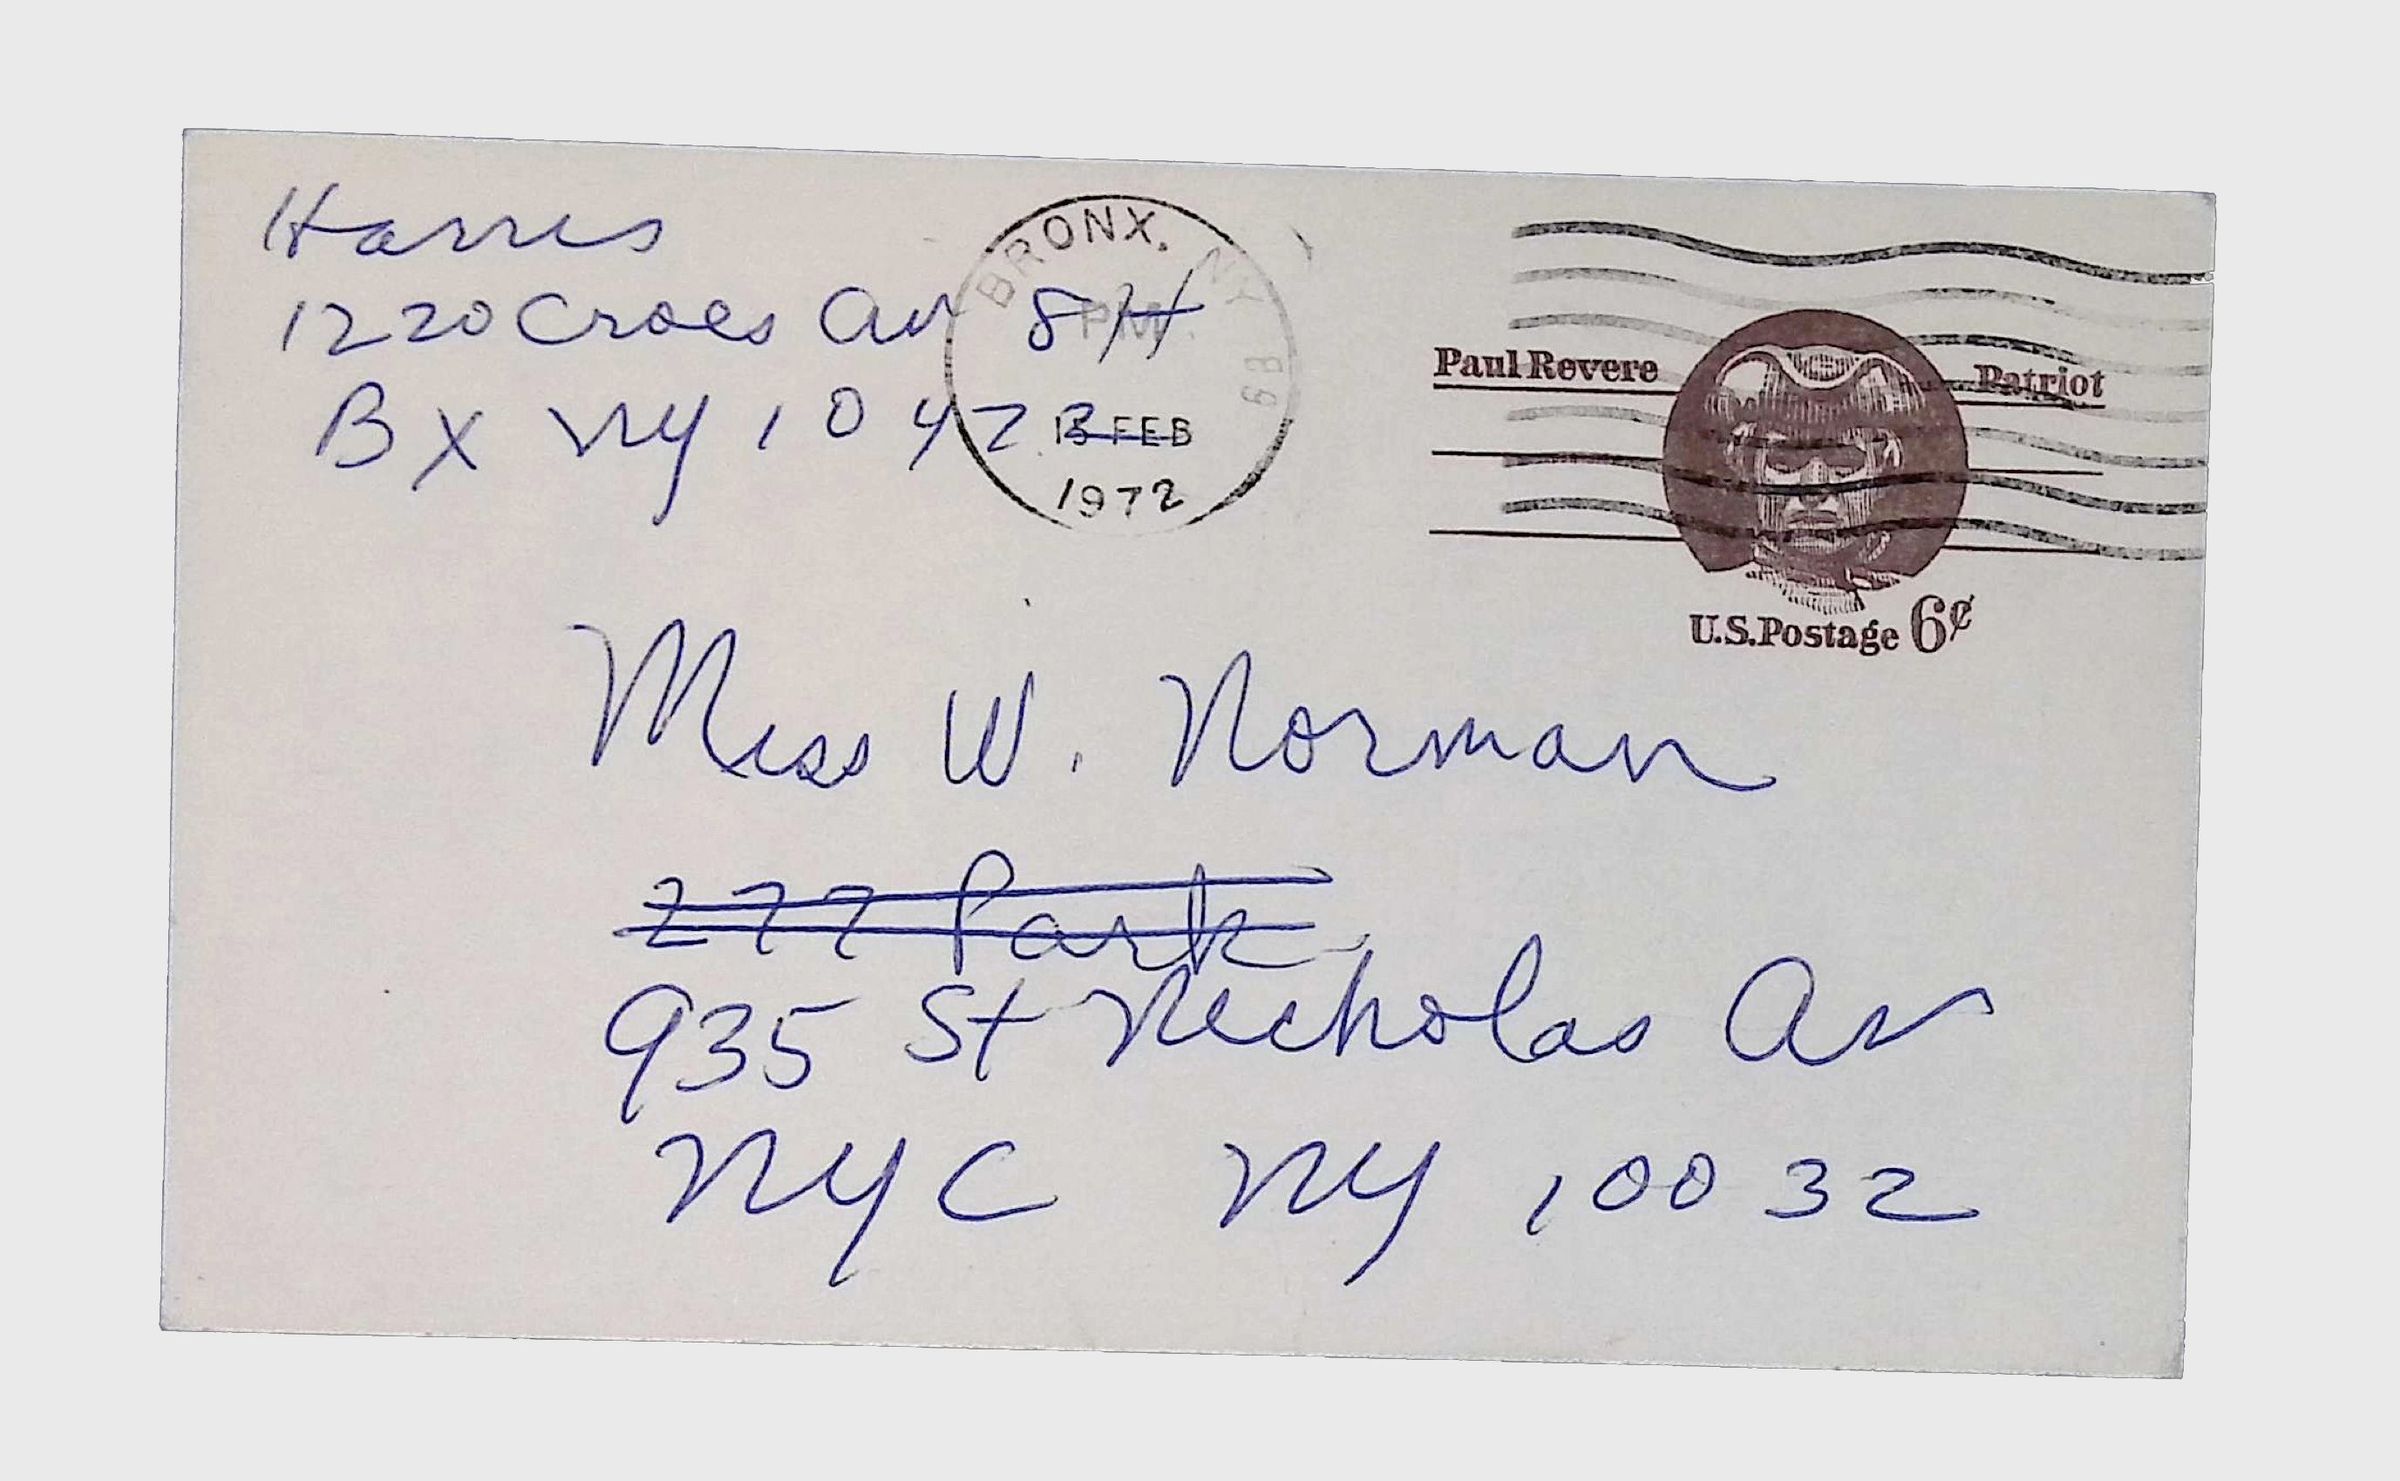 Harris
1220 Croes Av 8H
Bx NY 10472
BRONX, NY
PM
FEB
1972
Paul Revere Patriot
U.S.Postage 6¢
Miss W. Norman
277 Park
935 St Nicholas Av
NYC NY 10032